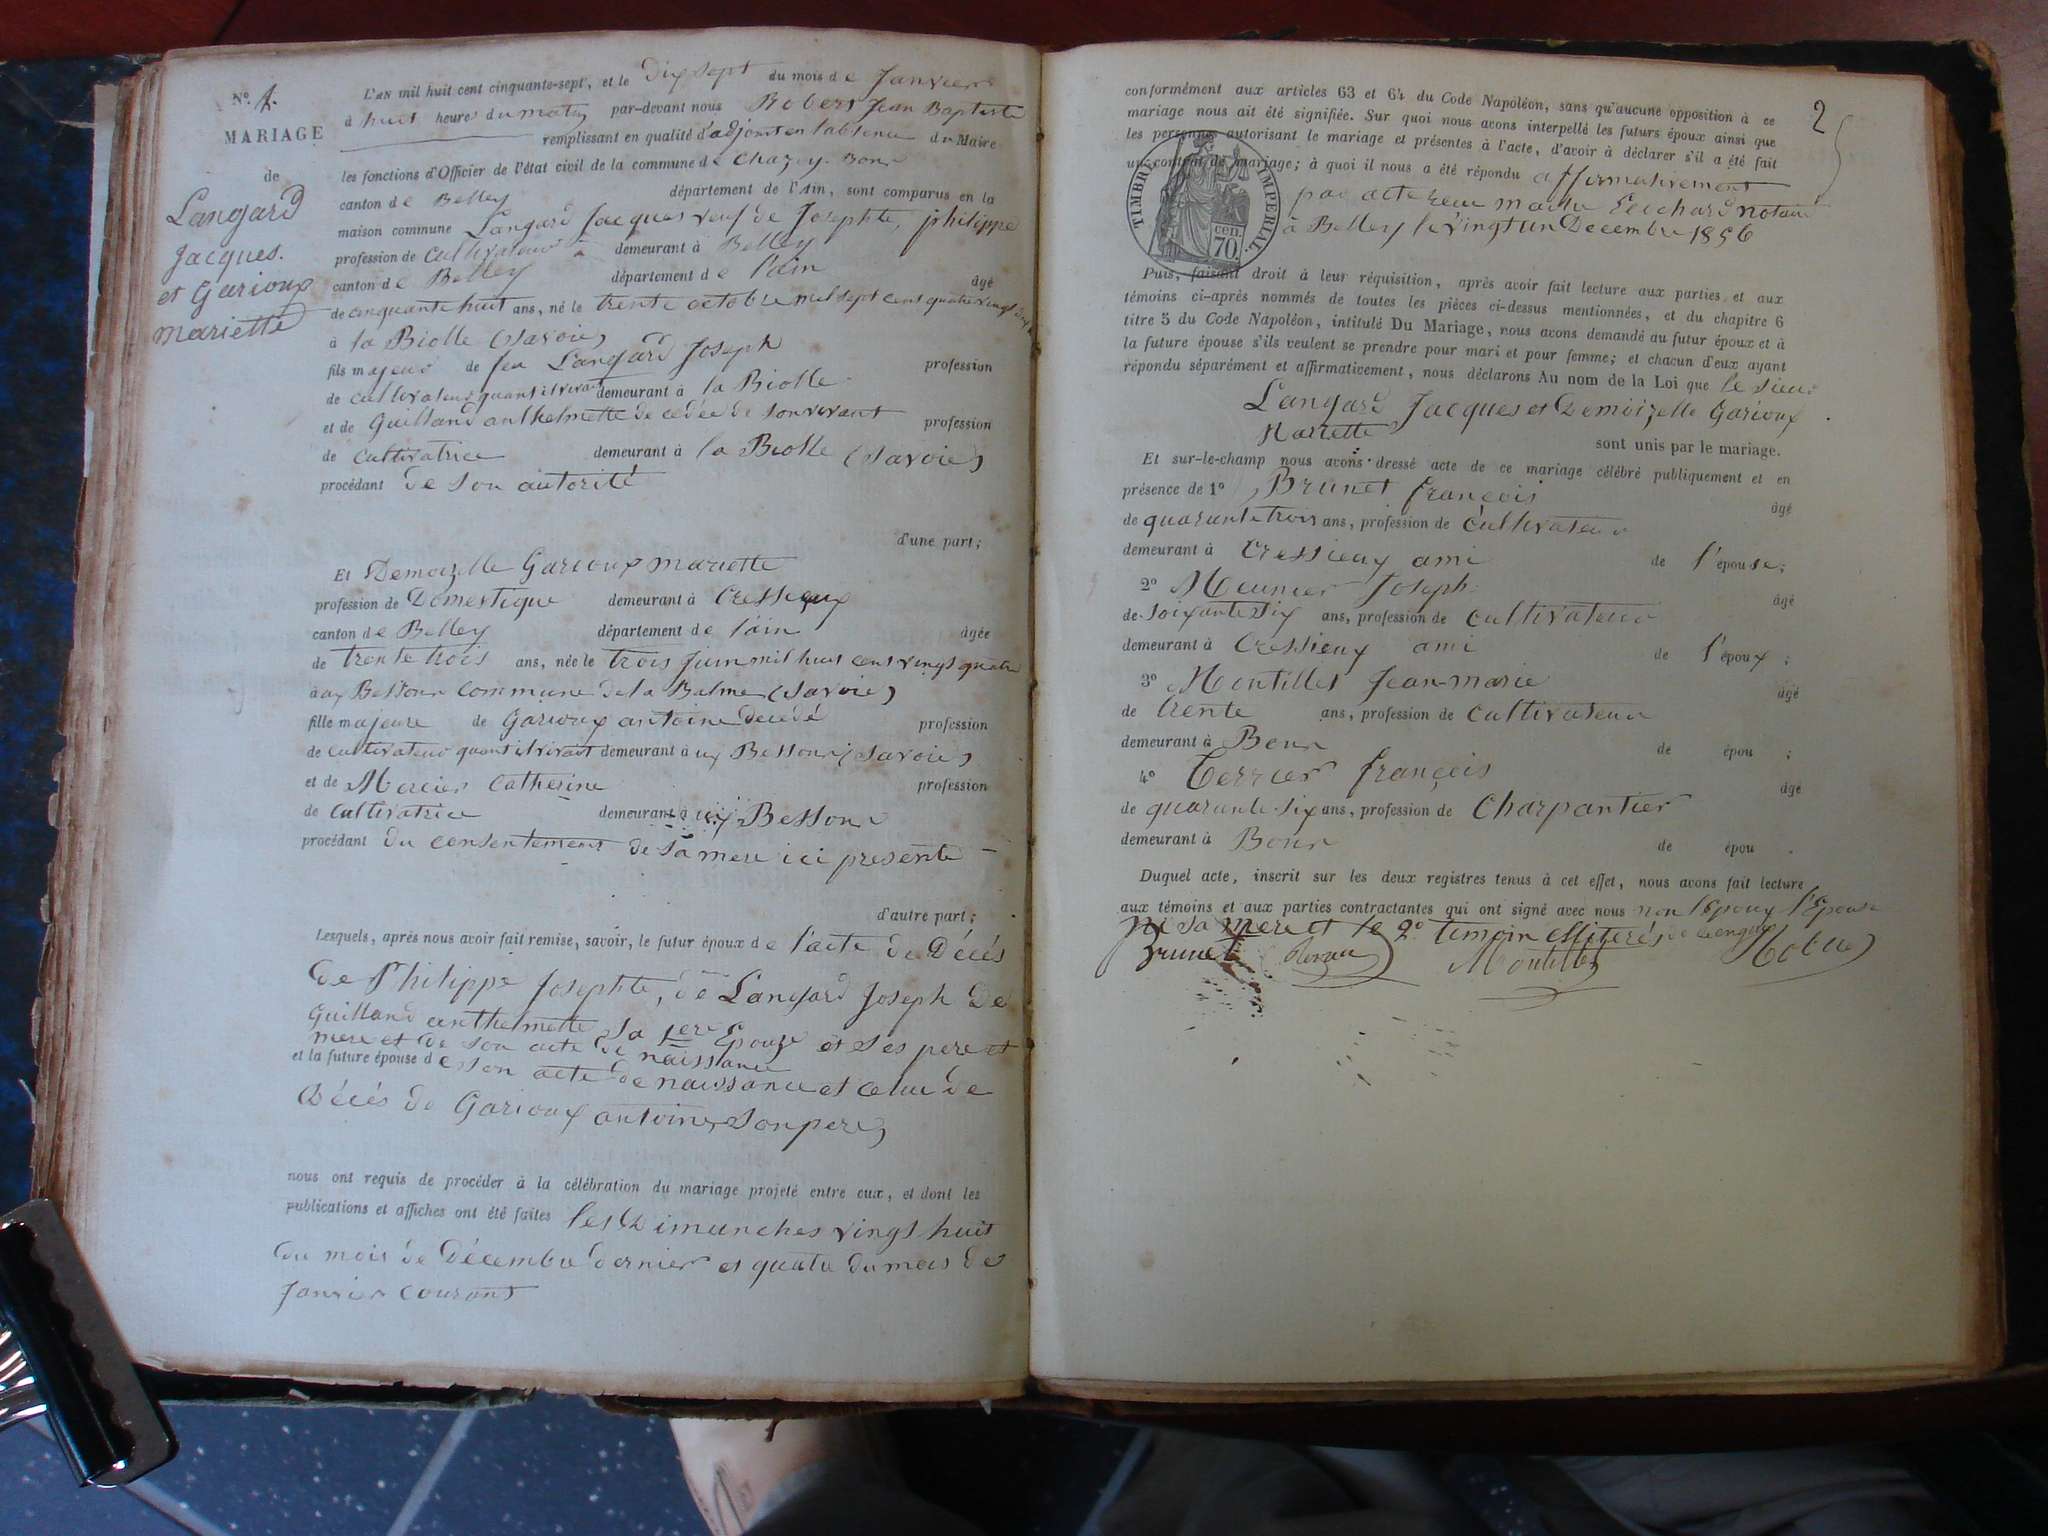 N° 1.
MARIAGE
de
Langard
Jacques.
et Garioux
mariette
L'AN mil huit cent cinquante-sept, et le dix sept du mois de Janvier
à huit heures du matin par-devant nous Robert Jean Baptiste
remplissant en qualité d'adjoint en l'absence du Maire
les fonctions d'Officier de l'état civil de la commune de Chazey-Bons
canton de Belley département de l'Ain, sont comparus en la
maison commune Langard Jacques veuf de Josephte, philippe
profession de cultivateur demeurant à Belley
canton de Belley département de l'ain âgé
de cinquante huit ans, né le trente octobre mil sept cent quatre vingt
à la Biolle (Savoie)
fils majeur de feu Langard Joseph profession
de cultivateur quant il vivait demeurant à la Biolle
et de Guilland anthelmette décédée de son vivant profession
de cultivatrice demeurant à la Biolle (Savoie)
procédant de son autorité
d'une part;
Et Demoizelle Garioux mariette
profession de Domestique demeurant à Cressieux
canton de Belley département de l'ain âgée
de trente trois ans, née le trois Juin mil huit cent vingt quatre
à aux Bessons commune de la Balme (Savoie)
fille majeure de Garioux antoine decédé profession
de cultivateur quant il vivait demeurant à ux Bessons (Savoie)
et de Mercier Catherine profession
de cultivatrice demeurant à ux Bessons
procédant du consentement de sa mere ici presente
d'autre part;
Lesquels, après nous avoir fait remise, savoir, le futur époux de l'acte de Décés
de Philippe Josephte, de Langard Joseph de
Guilland anthelmette sa 1ere Epouze et ses pere et
mere et de son acte de naissance
et la future épouse de son acte de naissance et celui de
Décés de Garioux antoine, son pere,
nous ont requis de procéder à la célébration du mariage projeté entre eux, et dont les
publications et affiches ont été faites les Dimanches vingt huit
du mois de Décembre dernier et quatre du mois de
Janvier courant
2
conformément aux articles 63 et 64 du Code Napoléon, sans qu'aucune opposition à ce
mariage nous ait été signifiée. Sur quoi nous avons interpellé les futurs époux ainsi que
les personnes autorisant le mariage et présentes à l'acte, d'avoir à déclarer s'il a été fait
un contrat de mariage; à quoi il nous a été répondu affirmativement
par acte recu maitre notaire
à Belley le vingt un Decembre 1856
TIMBRE IMPERIAL.
cen.
70.
Puis, faisant droit à leur réquisition, après avoir fait lecture aux parties et aux
témoins ci-après nommés de toutes les pièces ci-dessus mentionnées, et du chapitre 6
titre 5 du Code Napoléon, intitulé Du Mariage, nous avons demandé au futur époux et à
la future épouse s'ils veulent se prendre pour mari et pour femme; et chacun d'eux ayant
répondu séparément et affirmativement, nous déclarons Au nom de la Loi que le sieur
Langard Jacques et Demoizelle Garioux
Mariette sont unis par le mariage.
Et sur-le-champ nous avons dressé acte de ce mariage célébré publiquement et en
présence de 1° Brunet françois âgé
de quarante trois ans, profession de cultivateur
demeurant à Cressieux ami de l'épouse;
2° Meunier Joseph âgé
de soixante six ans, profession de cultivateur
demeurant à Cressieux ami de l'époux;
3° Montillet Jean-marie âgé
de trente ans, profession de cultivateur
demeurant à Bons de épou ;
4° Terrier françois âgé
de quarante-six ans, profession de Charpantier
demeurant à Bons de épou .
Duquel acte, inscrit sur les deux registres tenus à cet effet, nous avons fait lecture
aux témoins et aux parties contractantes qui ont signé avec nous non l'Epoux l'Epouse
ni sa mere et le 2° temoin
Brunet Montillet